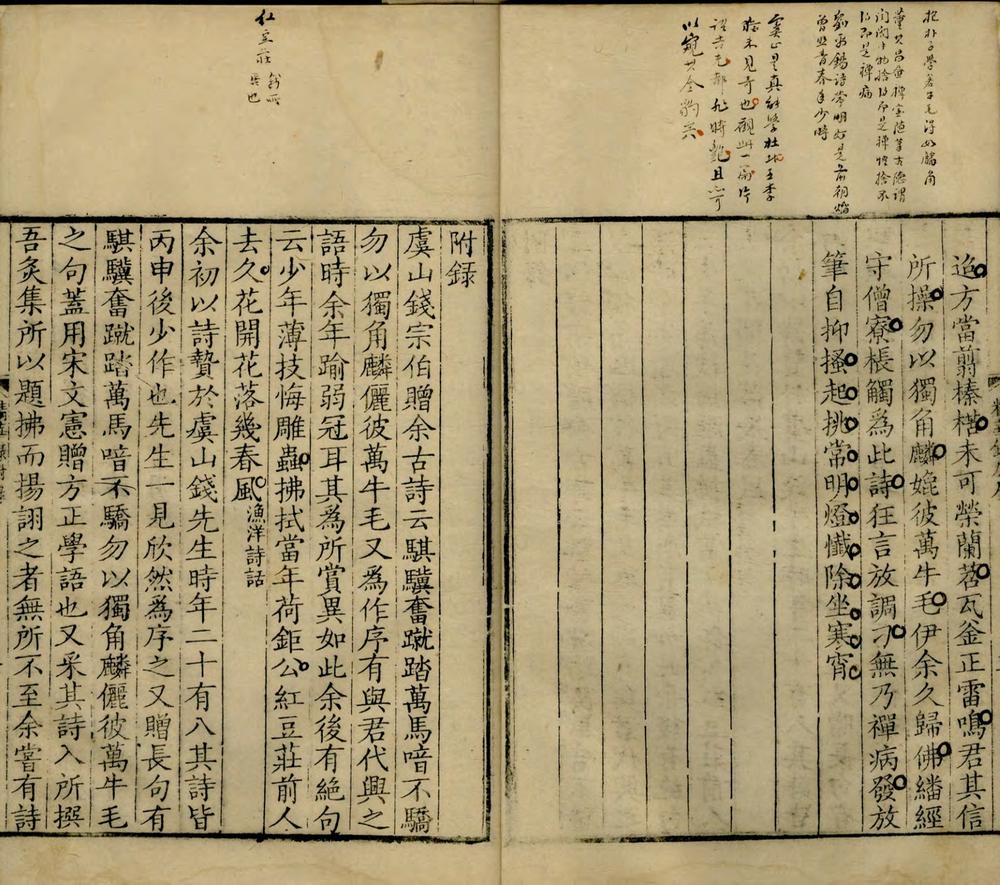 抱朴子學者如牛毛得如麟角
董其昌
曾照青春年少時
虞山是真能學杜
未見奇也觀此一
以窺其全豹矣
迨方當翦榛楛未可榮蘭苕瓦釜正雷鳴君其信
所操勿以獨角麟媲彼萬牛毛伊余久歸佛繙經
守僧寮棖觸為此詩狂言放調刁無乃禪病發放
筆自抑搔起挑常明燈懺除坐寒宵
紅豆莊
附録
虞山錢宗伯贈余古詩云騏驥奮蹴踏萬馬喑不驕
勿以獨角麟儷彼萬牛毛又為作序有與君代興之
語時余年踰弱冠耳其為所賞異如此余後有絕句
云少年薄技悔雕蟲拂拭當年荷鉅公紅豆莊前人
去久花開花落幾春風漁洋詩話
余初以詩贄於虞山錢先生時年二十有八其詩皆
丙申後少作也先生一見欣然為序之又贈長句有
騏驥奮蹴踏萬馬喑不驕勿以獨角麟儷彼萬牛毛
之句蓋用宋文憲贈方正學語也又采其詩入所撰
吾炙集所以題拂而揚詡之者無所不至余嘗有詩